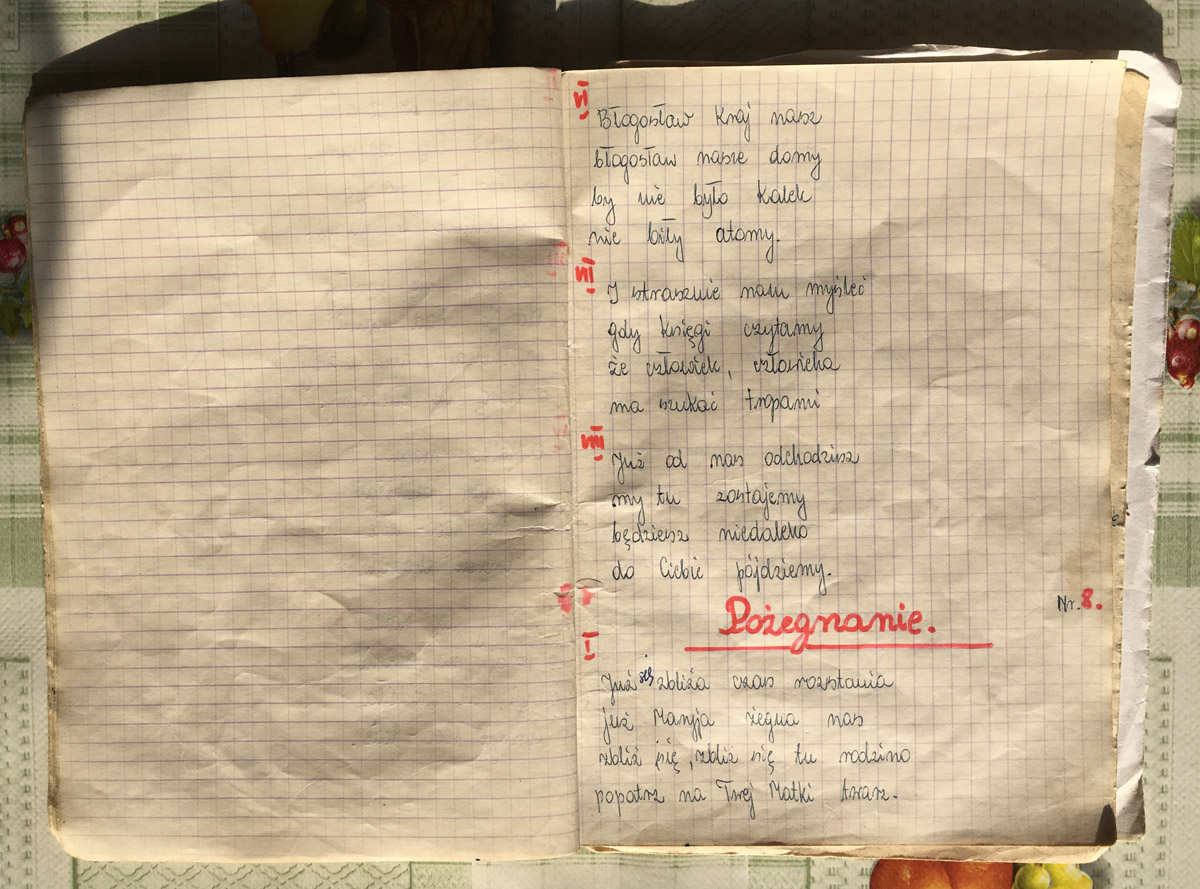 VI
Błogosław Kraj nasz
błogosław nasze domy
by nie było Kalek
nie biły atomy.
VII
I strasznie nam myśleć
gdy Księgi czytamy
że człowiek, człowieka
ma szukać tropami
VIII
Już od nas odchodzisz
my tu zostajemy
będziesz niedaleko
do Ciebie pójdziemy.
Pożegnanie. Nr. 8.
I
Już się zbliża czas rozstania
już Maryja żegna nas
zbliż się, zbliż się tu rodzino
popatrz na Twej Matki twarz.